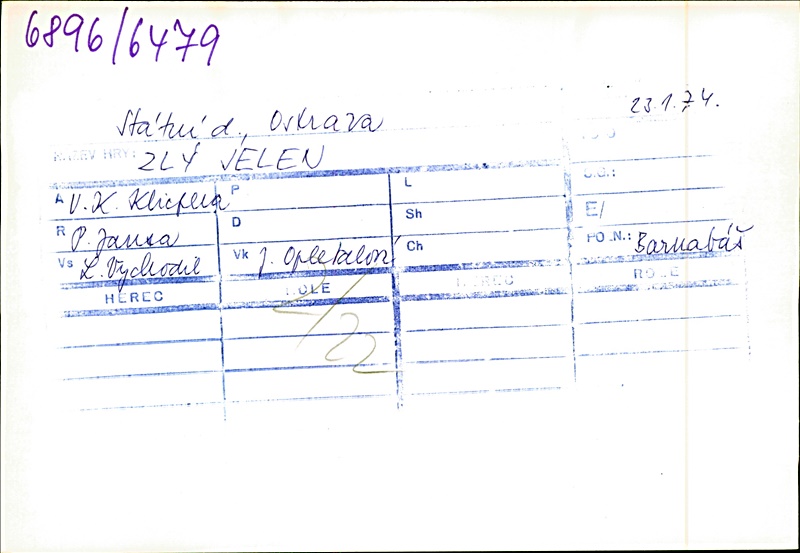 6896/6479
23.1.74.
Státní d., Ostrava
NÁZEV HRY: ZLÝ JELEN
A V. K. Klicpera P L S.G.:
R P. Jansa D Sh E/
Vs L. Vychodil Vk J. Opletalová Ch PO.N.: Barnabáš
HEREC ROLE HEREC ROLE
2/22